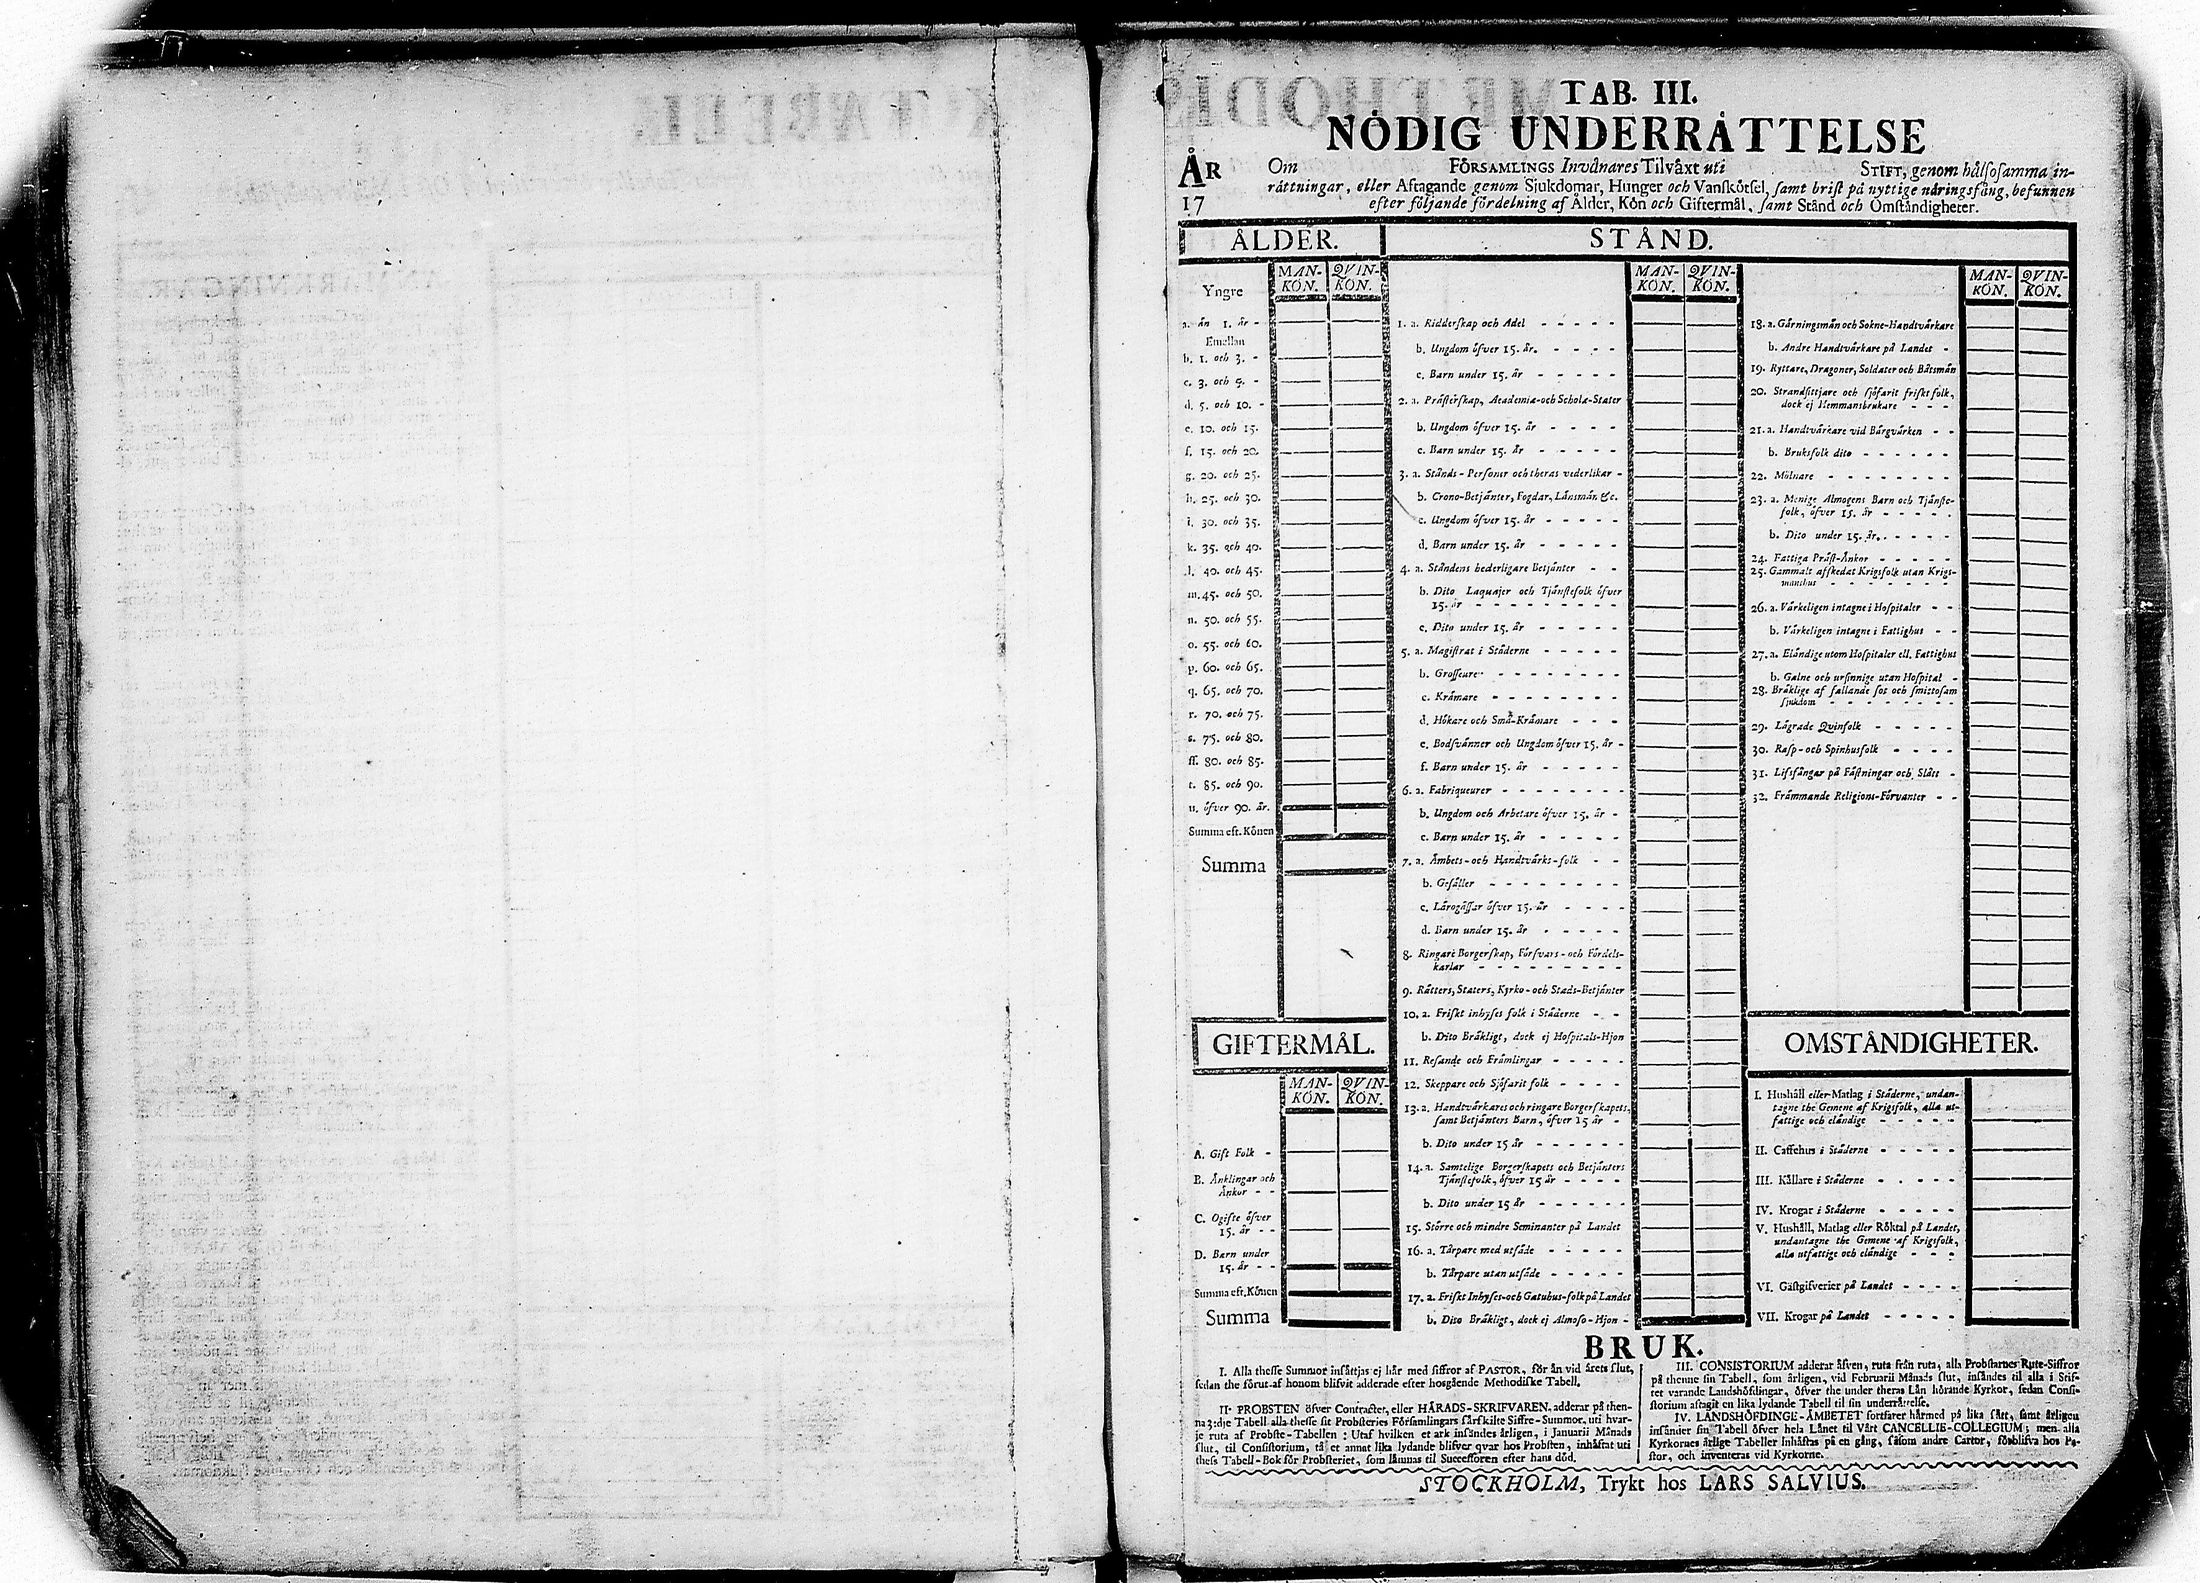 TAB. III.
NÖDIG UNDERRÅTTELSE
ÅR
17
Om FÖRSAMLINGS Invånares Tilvåxt uti STIFT, genom hålsosamma in-
råttningar, eller Aftagande genom Sjukdomar, Hunger och Vanskötsel, samt brist på nyttige nåringsfång, befunnen
efter följande fördelning af Ålder, Kön och Giftermål, samt Stånd och Omståndigheter.
ÅLDER.
MAN-KÖN. QVIN-KÖN.
Yngre
a. ån 1. år -
Emellan
b. 1. och 3. -
c. 3. och 5. -
d. 5. och 10. -
e. 10. och 15.
f. 15. och 20.
g. 20. och 25.
h. 25. och 30.
i. 30. och 35.
k. 35. och 40.
l. 40. och 45.
m. 45. och 50.
n. 50. och 55.
o. 55. och 60.
p. 60. och 65.
q. 65. och 70.
r. 70. och 75.
s. 75. och 80.
ff. 80. och 85.
t. 85. och 90.
u. öfver 90. år.
Summa eft. Könen
Summa
GIFTERMÅL.
MAN-KÖN. QVIN-KÖN.
A. Gift Folk -
B. Ånklingar och
Ånkor - -
C. Ogifte öfver
15. år - -
D. Barn under
15. år - -
Summa eft. Könen
Summa
STÅND.
MAN-KÖN. QVIN-KÖN.
1. a. Ridderskap och Adel - - - - -
b. Ungdom öfver 15. år. - - - -
c. Barn under 15. år - - - - -
2. a. Pråsterskap, Academiæ-och Scholæ-Stater
b. Ungdom öfver 15. år - - - -
c. Barn under 15. år - - - - -
3. a. Stånds-Personer och theras vederlikar -
b. Crono-Betjånter, Fogdar, Lånsmån &c.
c. Ungdom öfver 15. år - - - - -
d. Barn under 15. år - - - - -
4. a. Ståndens hederligare Betjånter - -
b. Dito Laquajer och Tjånstefolk öfver
15. år - - - - - - - -
c. Dito under 15. år - - - - -
5. a. Magistrat i Ståderne - - - - -
b. Grosseurer - - - - - - -
c. Kråmare - - - - - - -
d. Hökare och Små-Kråmare - - -
e. Bodsvånner och Ungdom öfver 15. år -
f. Barn under 15. år - - - - -
6. a. Fabriqueurer - - - - - - -
b. Ungdom och Arbetare öfver 15. år -
c. Barn under 15. år - - - - -
7. a. Åmbets-och Handtvårks-folk - -
b. Gesåller - - - - - - - -
c. Lårogåssar öfver 15. år - - - -
d. Barn under 15. år - - - - -
8. Ringare Borgerskap, Försvars-och Fördels-
karlar - - - - - - - - -
9. Råtters, Staters, Kyrko-och Stads-Betjånter
10. a. Friskt inhyses folk i Ståderne - -
b. Dito Bråkligt, dock ej Hospitals-Hjon
11. Resande och Fråmlingar - - - -
12. Skeppare och Sjöfarit folk - - - -
13. a. Handtvårkares och ringare Borgerskapets,
samt Betjånters Barn, öfver 15 år -
b. Dito under 15 år - - - - -
14. a. Samtelige Borgerskapets och Betjånters
Tjånstefolk, öfver 15 år - - - -
b. Dito under 15 år - - - - -
15. Större och mindre Seminanter på Landet
16. a. Tårpare med utsåde - - - - -
b. Tårpare utan utsåde - - - - -
17. a. Friskt Inhyses-och Gatuhus-folk på Landet
b. Dito Bråkligt, dock ej Almoso-Hjon -
MAN-KÖN. QVIN-KÖN.
18. a. Gårningsmån och Sokne-Handtvårkare
b. Andre Handtvårkare på Landet -
19. Ryttare, Dragoner, Soldater och Båtsmån
20. Strandsittjare och sjöfarit friskt folk,
dock ej Hemmansbrukare - - -
21. a. Handtvårkare vid Bårgvårken - -
b. Bruksfolk dito - - - - - -
22. Mölnare - - - - - - - -
23. a. Menige Almogens Barn och Tjånste-
folk, öfver 15. år - - - - -
b. Dito under 15. år. - - - - -
24. Fattiga Pråst-Ånkor - - - - -
25. Gammalt afskedat Krigsfolk utan Krigs-
manshus - - - - - - -
26. a. Vårkeligen intagne i Hospitaler - -
b. Vårkeligen intagne i Fattighus - -
27. a. Elåndige utom Hospitaler ell. Fattighus
b. Galne och ursinnige utan Hospital -
28. Bråklige af fallande sot och smittosam
sjukdom - - - - - - -
29. Lågrade Qvinfolk - - - - -
30. Rasp-och Spinhusfolk - - - -
31. Lifsfångar på Fåstningar och Slått -
32. Fråmmande Religions-Förvanter - -
OMSTÅNDIGHETER.
I. Hushåll eller Matlag i Ståderne, undan-
tagne the Gemene af Krigsfolk, alla ut-
fattige och elåndige - - - - -
II. Caffehus i Ståderne - - - - -
III. Kållare i Ståderne - - - - -
IV. Krogar i Ståderne - - - - -
V. Hushåll, Matlag eller Röktal på Landet,
undantagne the Gemene af Krigsfolk,
alla utfattige och elåndige - - -
VI. Gåstgifverier på Landet - - - -
VII. Krogar på Landet - - - - -
BRUK.
I. Alla thesse Summor insåttjas ej hår med siffror af PASTOR, för ån vid årets slut,
sedan the förut af honom blifvit adderade efter hosgående Methodiske Tabell.
II. PROBSTEN öfver Contractet, eller HÅRADS-SKRIFVAREN, adderar på then-
na 3:dje Tabell alla thesse sit Probsteries Församlingars sårskilte Siffre-Summor, uti hvar-
je ruta af Probste-Tabellen: Utaf hvilken et ark insåndes årligen, i Januarii Månads
slut, til Consistorium, tå et annat lika lydande blifver qvar hos Probsten, inhåftat uti
thess Tabell-Bok för Probsteriet, som låmnas til Successoren efter hans död.
III. CONSISTORIUM adderar åfven, ruta från ruta, alla Probstarnes Rute-Siffror
på thenne sin Tabell, som årligen, vid Februarii Månads slut, insåndes til alla i Stif-
tet varande Landshöfdingar, öfver the under theras Lån hörande Kyrkor, sedan Consi-
storium aftagit en lika lydande Tabell til sin underråttelse.
IV. LANDSHÖFDINGE-ÅMBETET fortfarer hårmed på lika sått, samt årligen
insånder sin Tabell öfver hela Lånet til Vårt CANCELLIE-COLLEGIUM; men alla
Kyrkornes årlige Tabeller inhåftas på en gång, såsom andre Cartor, förblifva hos Pa-
stor, och inventeras vid Kyrkorne.
STOCKHOLM, Trykt hos LARS SALVIUS.